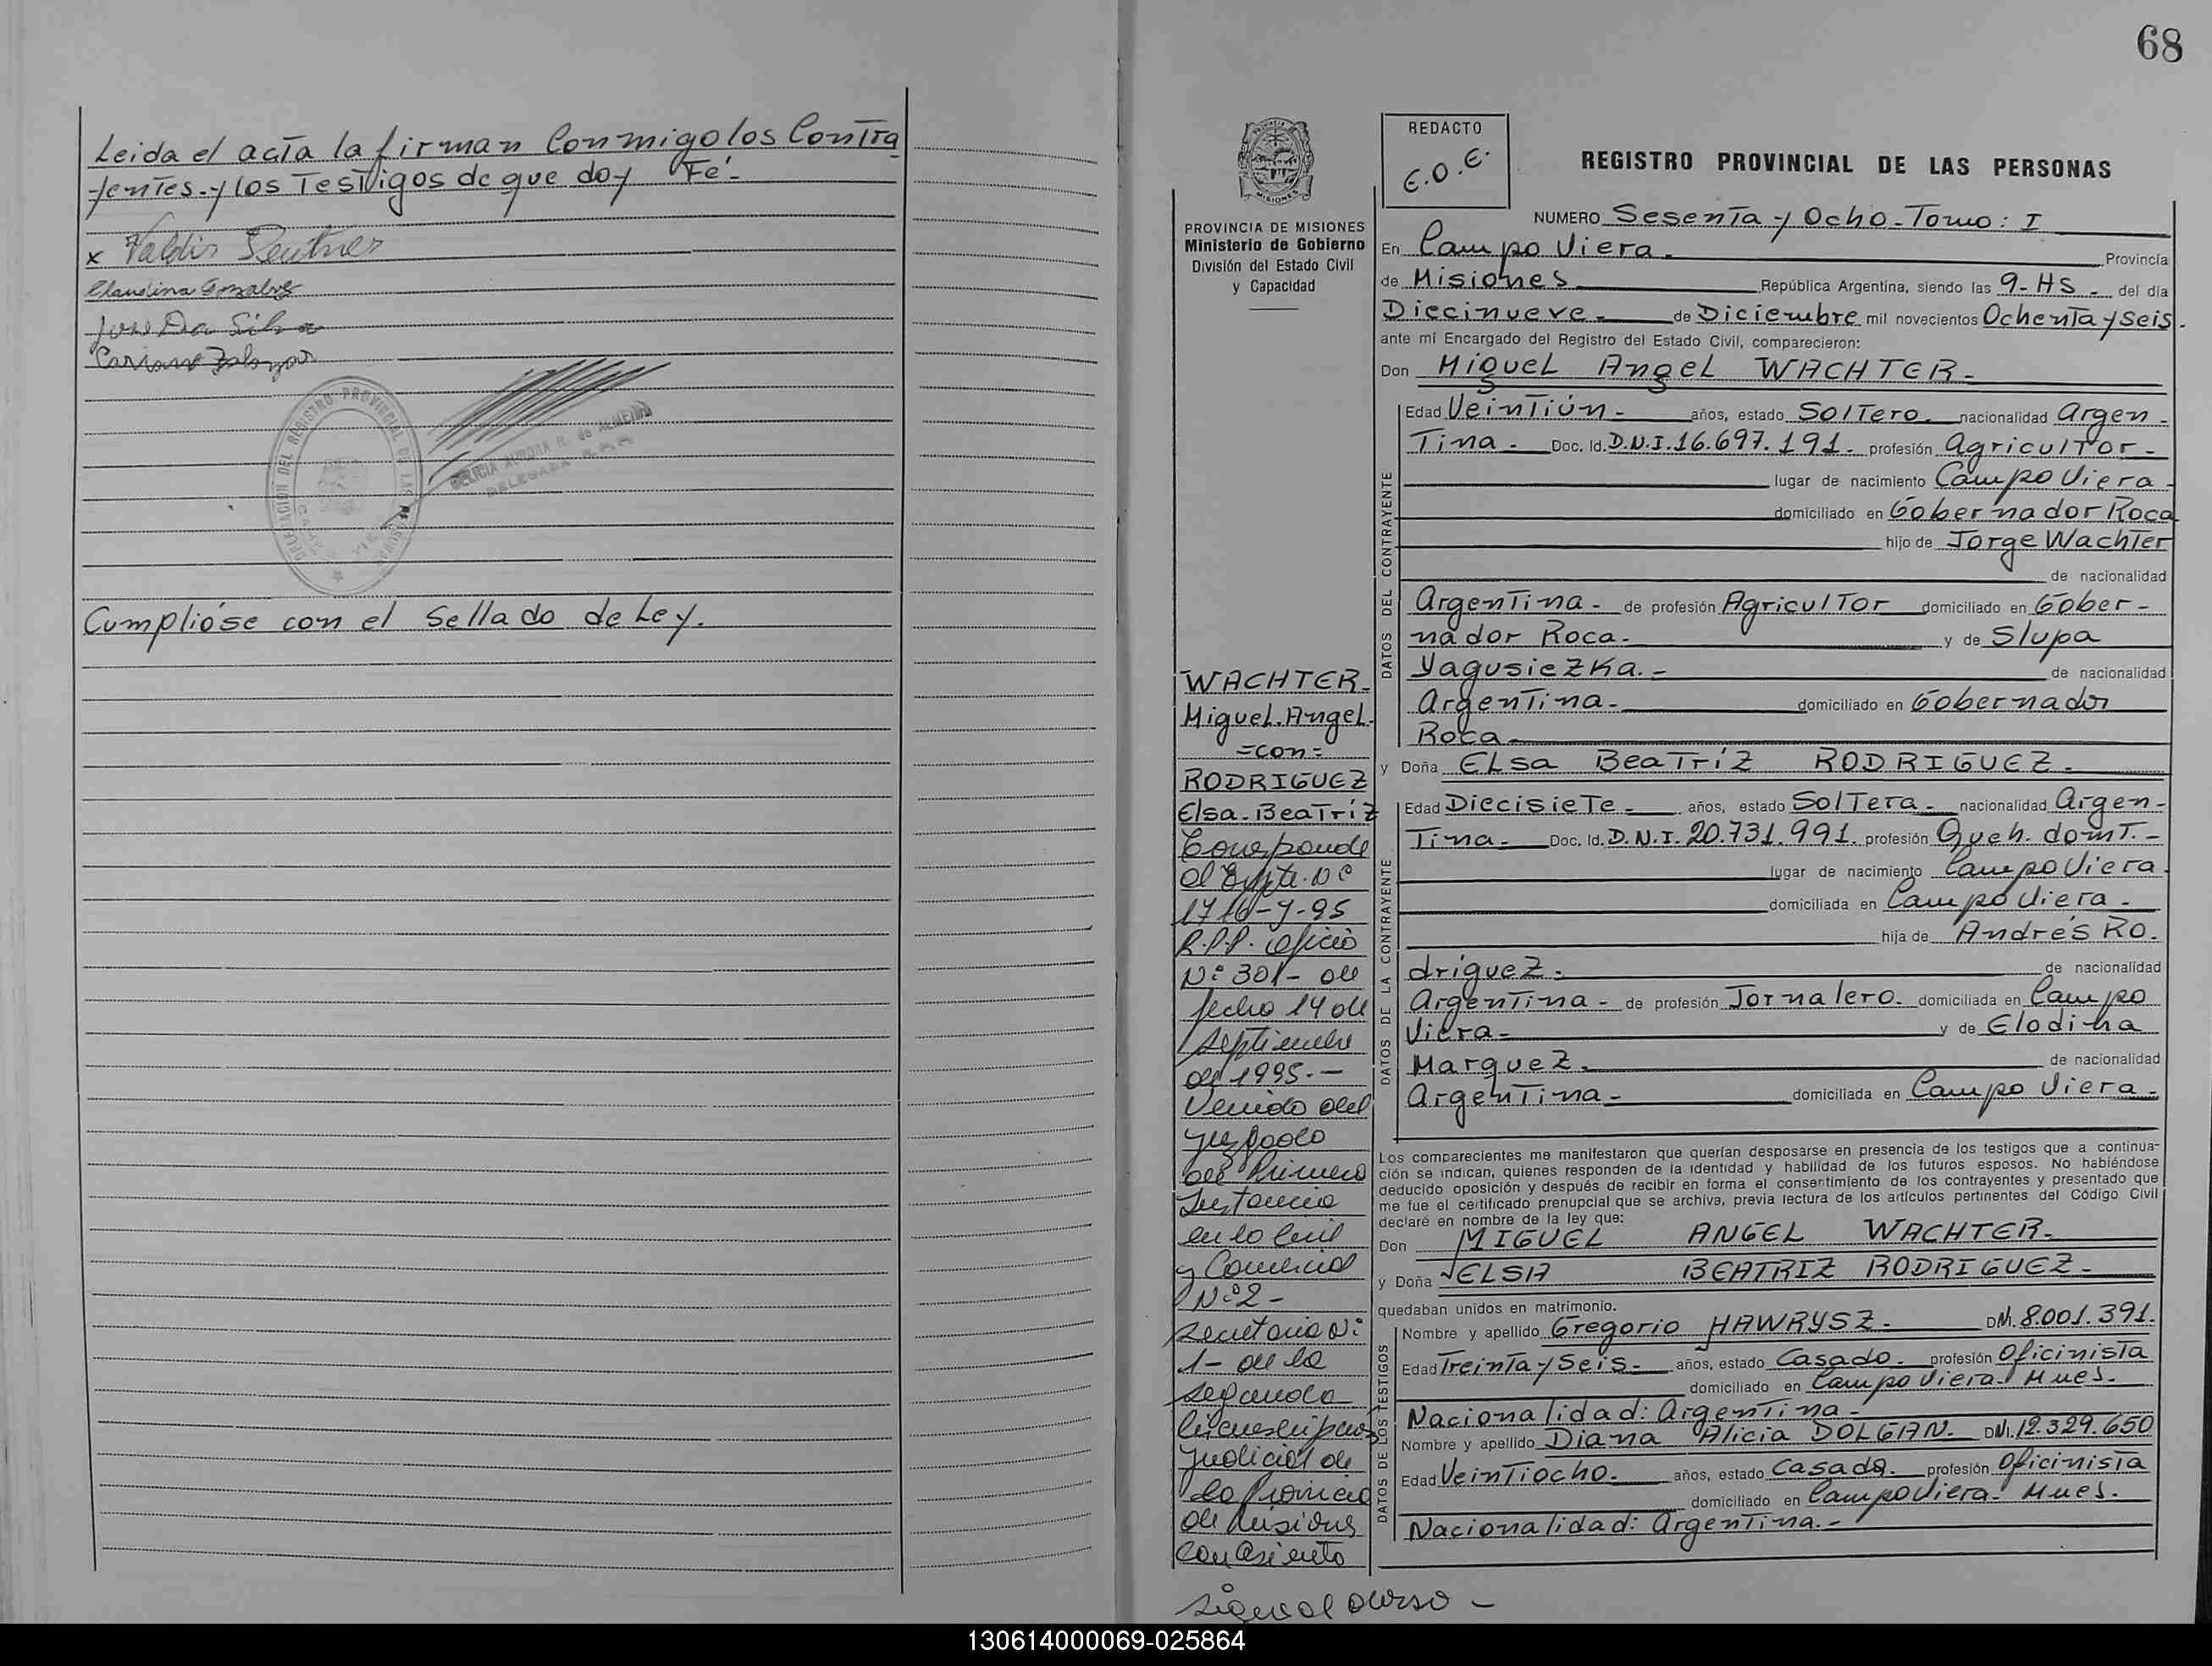 Leida el acta la firman Conmigo los Contra
yentes.-y los Testigos de que doy Fé.-
x Valdir
Claudina Gonzalvez
Jose Da Silva
DELEGACION DEL REGISTRO PROVINCIAL DE LAS PERSONAS
DELICIA AURORA R. de ALMEIDA
DELEGADA R.P.P.
Cumplióse con el Sellado de Ley.
68
PROVINCIA DE MISIONES
Ministerio de Gobierno
División del Estado Civil
y Capacidad
WACHTER.
Miguel.Angel.
=con=
RODRIGUEZ
Elsa.Beatríz
Corresponde
al Expte. Nº
1716-y-95
R.P.P. Oficio
Nº 301- de
fecha 14 de
septiembre
de 1995.-
Venido del
Juzgado
de Primera
Instancia
en lo Civil
y Comercial
Nº 2-
secretaria Nº
1- de la
segunda
Circunscripción
Judicial de
la Provincia
de Misiones
con asiento
sigue al dorso -
REDACTO
E.O.E.
REGISTRO PROVINCIAL DE LAS PERSONAS
NUMERO Sesenta y Ocho-Tomo: I
En Campo Viera. Provincia
de Misiones República Argentina, siendo las 9-HS- del día
Diecinueve. de Diciembre mil novecientos Ochenta y seis.
ante mí Encargado del Registro del Estado Civil, comparecieron:
Don Miguel Angel WACHTER-
DATOS DEL CONTRAYENTE
Edad Veintiún- años, estado Soltero. nacionalidad Argen-
Tina- Doc. Id. D.N.I.16.697.191. profesión Agricultor-
lugar de nacimiento Campo Viera-
domiciliado en Gobernador Roca
hijo de Jorge Wachter
de nacionalidad
Argentina- de profesión Agricultor domiciliado en Gober-
nador Roca- y de Slupa
Yagusiezka.- de nacionalidad
Argentina- domiciliado en Gobernador
Roca-
y Doña Elsa Beatríz RODRIGUEZ-
DATOS DE LA CONTRAYENTE
Edad Diecisiete- años, estado Soltera- nacionalidad Argen-
Tina- Doc. Id. D.N.I.20.731.991. profesión Queh. domt.-
lugar de nacimiento Campo Viera.
domiciliada en Campo Viera-
hija de Andrés Ro.
driguez. de nacionalidad
Argentina- de profesión Jornalero. domiciliada en Campo
Viera- y de Elodina
Marquez. de nacionalidad
Argentina- domiciliada en Campo Viera-
Los comparecientes me manifestaron que querían desposarse en presencia de los testigos que a continua-
ción se indican, quienes responden de la identidad y habilidad de los futuros esposos. No habiéndose
deducido oposición y después de recibir en forma el consentimiento de los contrayentes y presentado que
me fue el certificado prenupcial que se archiva, previa lectura de los artículos pertinentes del Código Civil
declaré en nombre de la ley que:
Don MIGUEL ANGEL WACHTER-
y Doña ELSA BEATRIZ RODRIGUEZ-
quedaban unidos en matrimonio.
DATOS DE LOS TESTIGOS
Nombre y apellido Gregorio HAWRYSZ- DNI.8.001.391.
Edad Treinta y Seis- años, estado Casado. profesión Oficinista
domiciliado en Campo Viera- Mnes.
Nacionalidad: Argentina-
Nombre y apellido Diana Alicia DOLGAN- DNI.12.329.650
Edad Veintiocho. años, estado Casada. profesión Oficinista
domiciliado en Campo Viera- Mnes.
Nacionalidad: Argentina.-
130614000069-025864